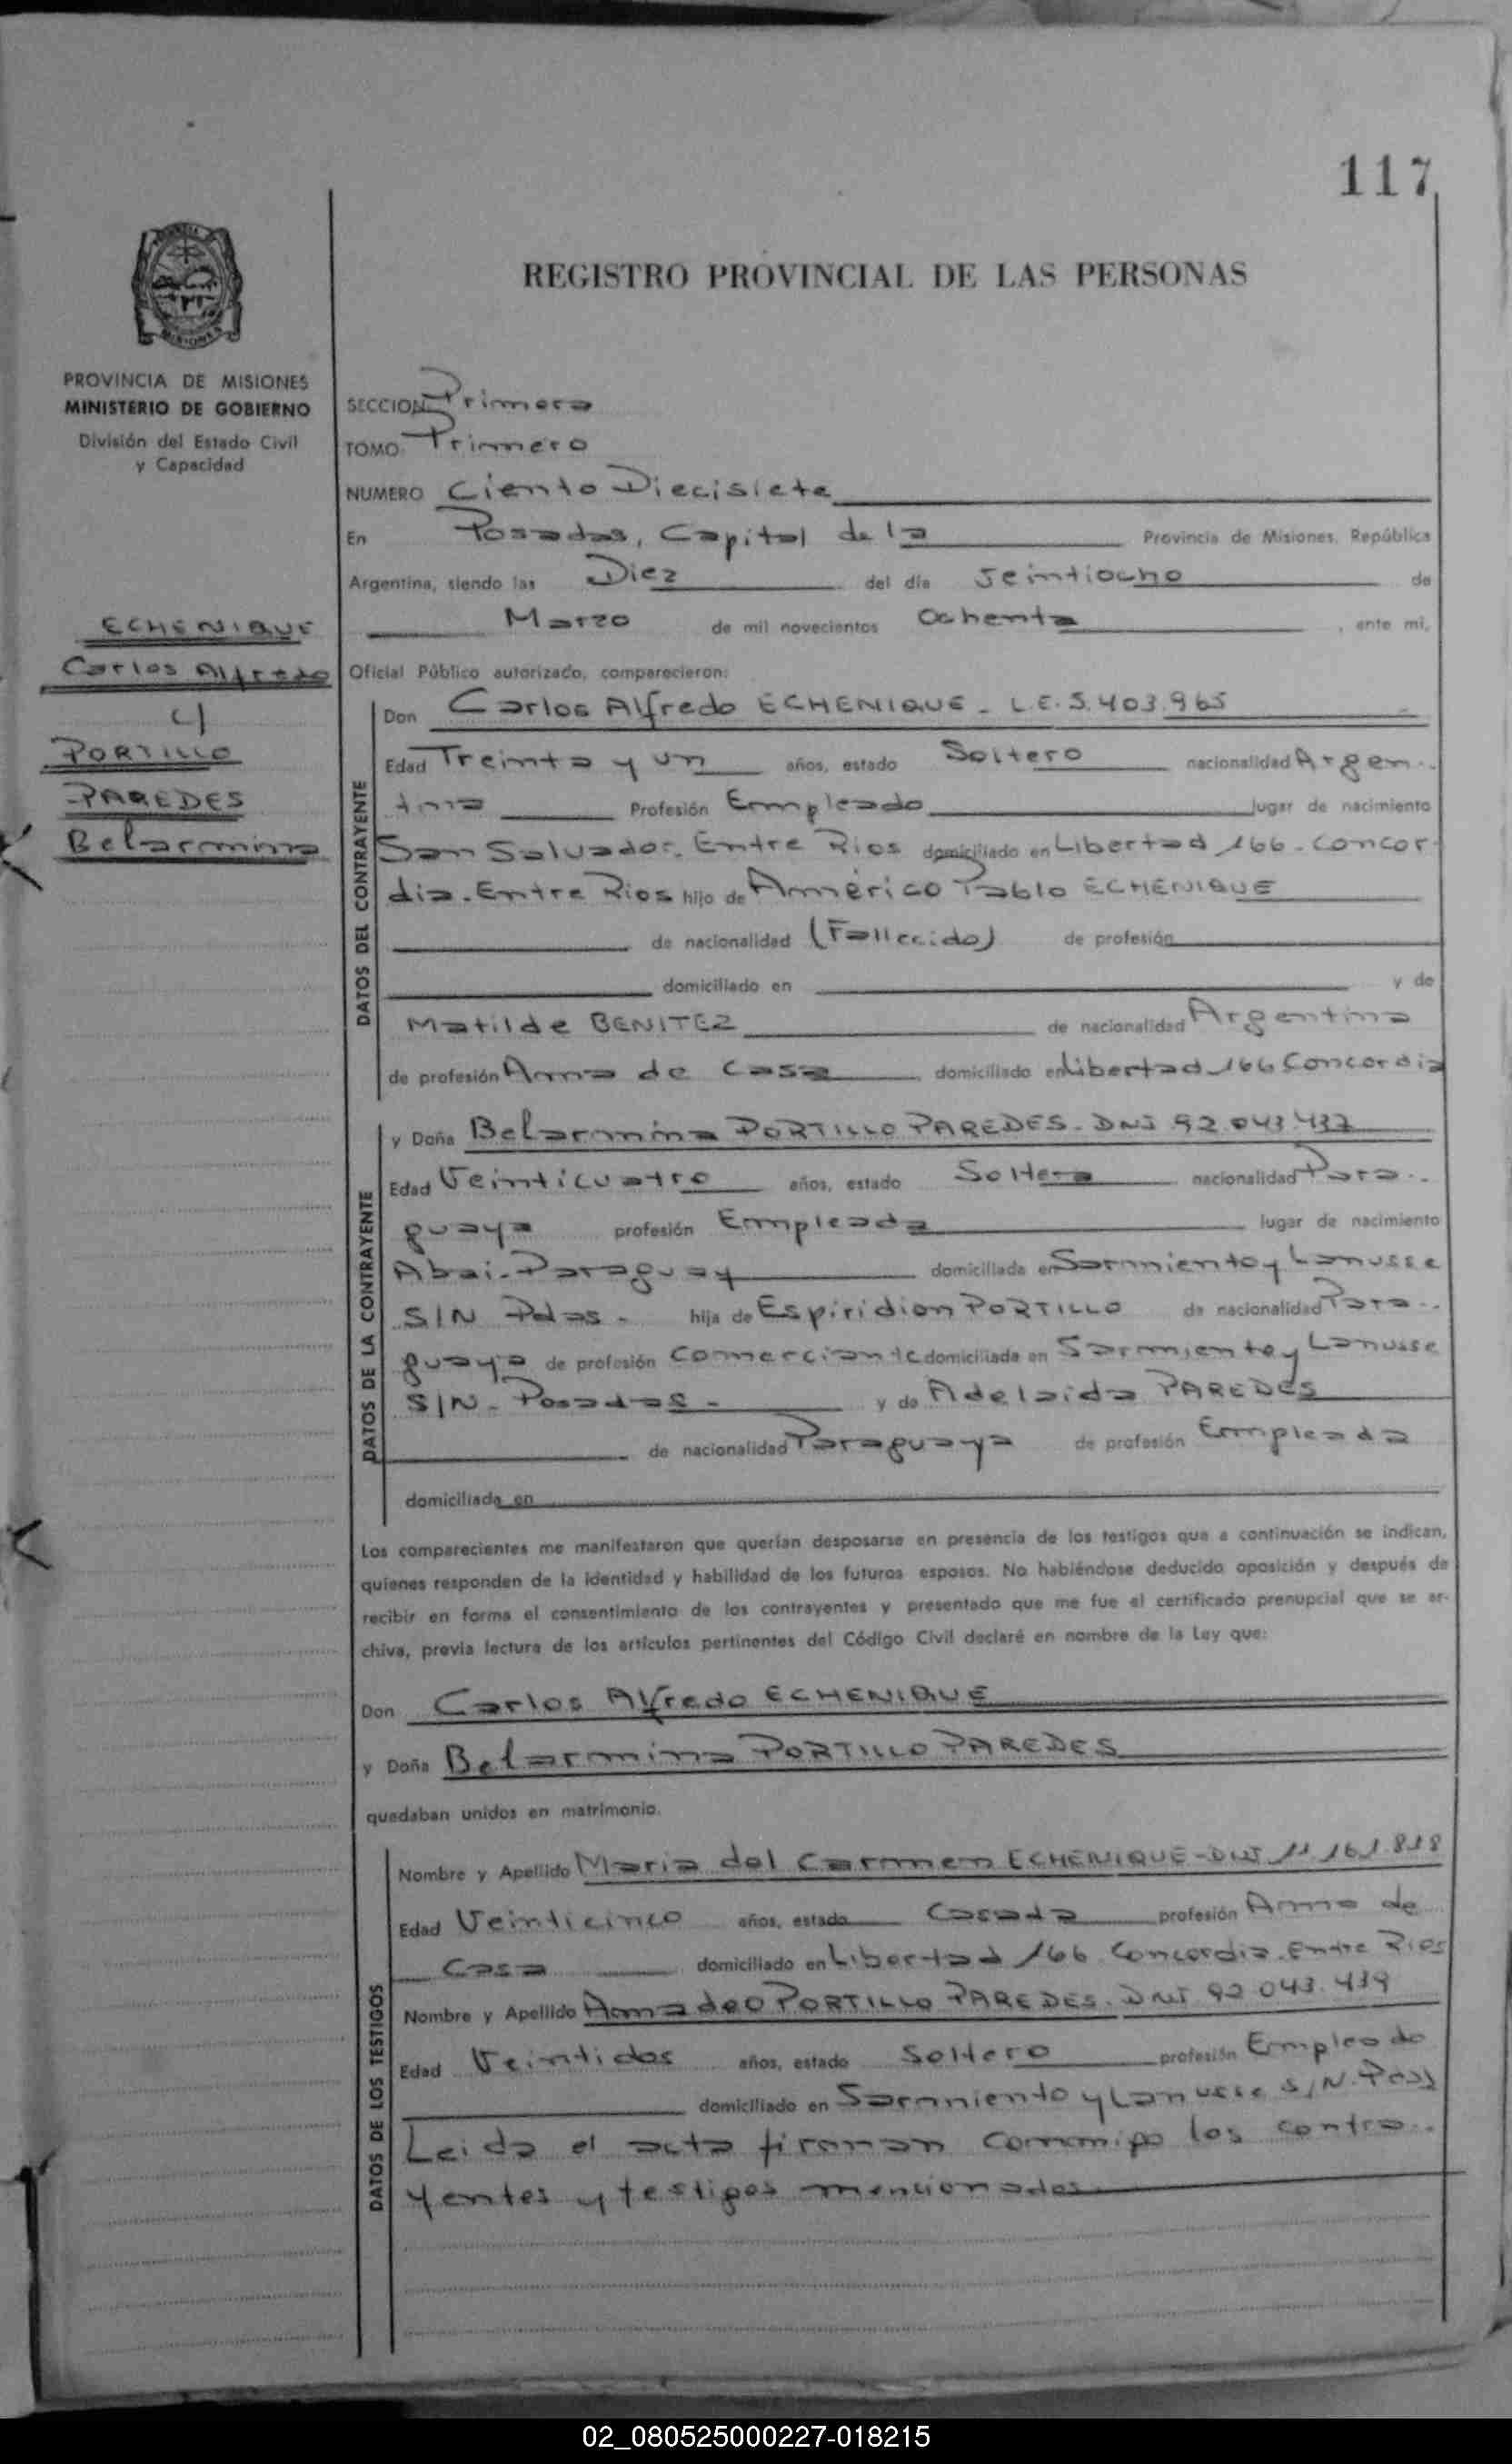 117
REGISTRO PROVINCIAL DE LAS PERSONAS
PROVINCIA DE MISIONES
MINISTERIO DE GOBIERNO
División del Estado Civil
y Capacidad
ECHENIQUE
Carlos Alfredo
c/
PORTILLO
PAREDES
Belarmina
SECCION Primera
TOMO Primero
NUMERO Ciento Diecisiete
En Posadas, Capital de la Provincia de Misiones, República
Argentina, siendo las Diez del día Veintiocho de
Marzo de mil novecientos Ochenta, ante mí,
Oficial Público autorizado, comparecieron:
DATOS DEL CONTRAYENTE
Don Carlos Alfredo ECHENIQUE - L.E. 5.403.965
Edad Treinta y un años, estado Soltero nacionalidad Argen-
tina Profesión Empleado lugar de nacimiento
San Salvador. Entre Rios domiciliado en Libertad 166 - Concor-
dia. Entre Rios hijo de Américo Pablo ECHENIQUE
de nacionalidad (Fallecido) de profesión
domiciliado en y de
Matilde BENITEZ de nacionalidad Argentina
de profesión Ama de Casa domiciliado en Libertad 166 Concordia
DATOS DE LA CONTRAYENTE
y Doña Belarmina PORTILLO PAREDES - DNI 92.043.437
Edad Veinticuatro años, estado Soltera nacionalidad Para-
guaya profesión Empleada lugar de nacimiento
Abai - Paraguay domiciliada en Sarmiento y Lanusse
S/N Pdas - hija de Espiridion PORTILLO de nacionalidad Para-
guaya de profesión Comerciante domiciliada en Sarmiento y Lanusse
S/N - Posadas - y de Adelaida PAREDES
de nacionalidad Paraguaya de profesión Empleada
domiciliada en
Los comparecientes me manifestaron que querían desposarse en presencia de los testigos que a continuación se indican,
quienes responden de la identidad y habilidad de los futuros esposos. No habiéndose deducido oposición y después de
recibir en forma el consentimiento de los contrayentes y presentado que me fue el certificado prenupcial que se ar-
chiva, previa lectura de los artículos pertinentes del Código Civil declaré en nombre de la Ley que:
Don Carlos Alfredo ECHENIQUE
y Doña Belarmina PORTILLO PAREDES
quedaban unidos en matrimonio.
DATOS DE LOS TESTIGOS
Nombre y Apellido Maria del Carmen ECHENIQUE - DNI 11.161.818
Edad Veinticinco años, estado Casada profesión Ama de
Casa domiciliado en Libertad 166. Concordia. Entre Rios
Nombre y Apellido Amadeo PORTILLO PAREDES. DNI 92.043.439
Edad Veintidos años, estado Soltero profesión Empleado
domiciliado en Sarmiento y Lanusse S/N.
Leida el acta firman conmigo los contra-
yentes y testigos mencionados
02_080525000227-018215